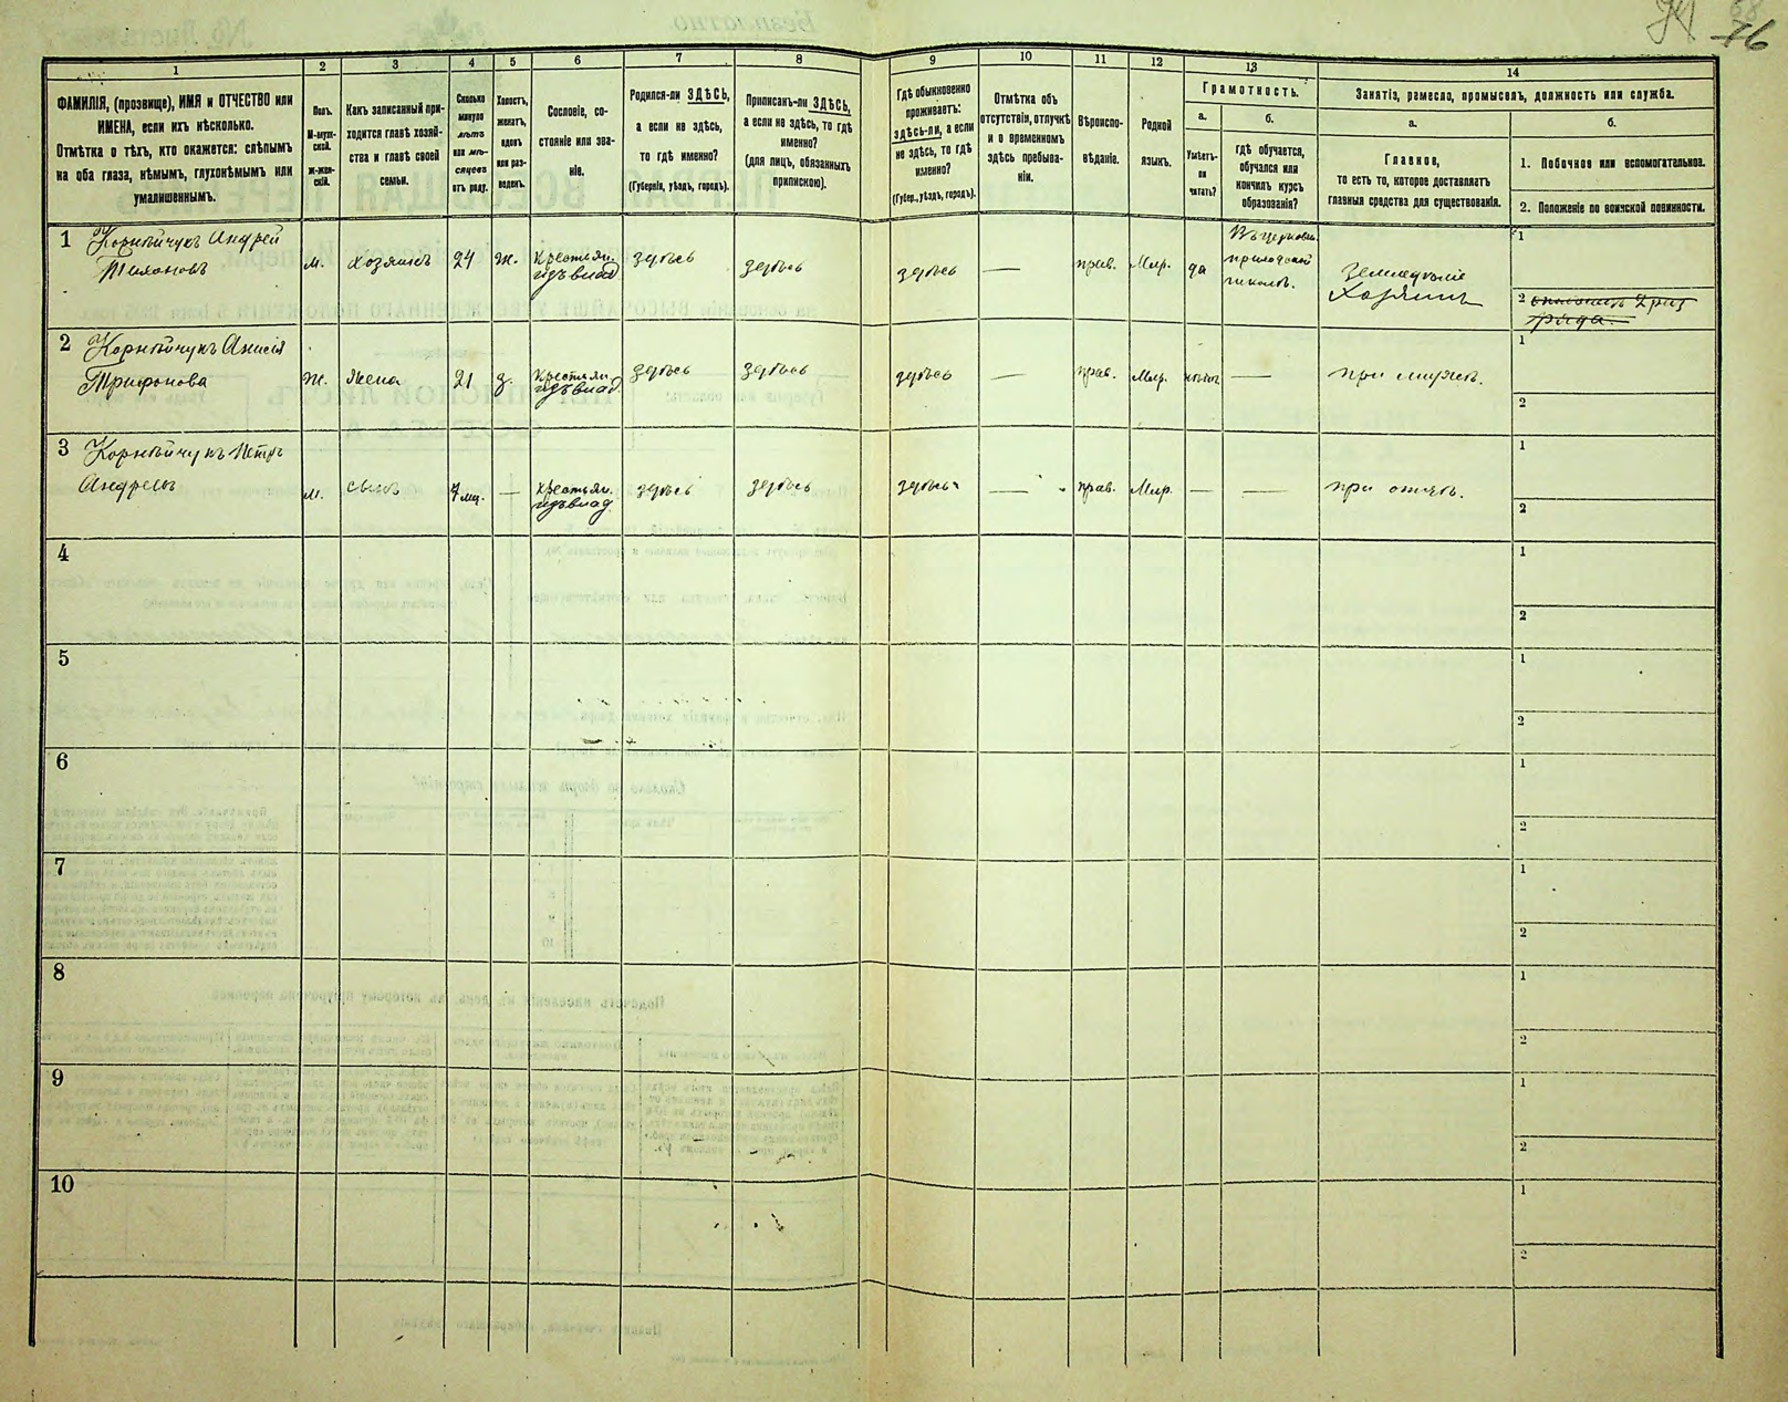 76
1
2
3
4
5
6
7
8
9
10
11
12
13
14
ФАМИЛІЯ, (прозвище), ИМЯ и ОТЧЕСТВО или
ИМЕНА, если ихъ нѣсколько.
Отмѣтка о тѣхъ, кто окажется: слѣпымъ
на оба глаза, нѣмымъ, глухонѣмымъ или
умалишеннымъ.
Полъ.
М-муж-
ской.
Ж-жен-
скій.
Какъ записанный при-
ходится главѣ хозяй-
ства и главѣ своей
семьи.
Сколько
минуло
лѣтъ
или мѣ-
сяцевъ
отъ роду.
Холостъ,
женатъ,
вдовъ
или раз-
веденъ.
Сословіе, со-
стояніе или зва-
ніе.
Родился-ли ЗДѢСЬ,
а если не здѣсь,
то гдѣ именно?
(Губернія, уѣздъ, городъ).
Приписанъ-ли ЗДѢСЬ,
а если не здѣсь, то гдѣ
именно?
(для лицъ, обязанныхъ
припискою).
Гдѣ обыкновенно
проживаетъ:
здѣсь-ли, а если
не здѣсь, то гдѣ
именно?
(Губер., уѣздъ, городъ).
Отмѣтка объ
отсутствіи, отлучкѣ
и о временномъ
здѣсь пребыва-
ніи.
Вѣроиспо-
вѣданіе.
Родной
языкъ.
Грамотность.
а.
Умѣетъ-
ли
читать?
б.
гдѣ обучается,
обучался или
кончилъ курсъ
образованія?
Занятіе, ремесло, промыселъ, должность или служба.
а.
Главное,
то есть то, которое доставляетъ
главныя средства для существованія.
б.
1. Побочное или вспомогательное.
2. Положеніе по воинской повинности.
1 Корнѣйчукъ Андрей
Тихоновъ
м.
хозяинъ
24
ж.
Крестьян.
изъ влад.
здѣсь
здѣсь
здѣсь
—
прав.
Мар.
да
Въ церковн.
приходской
школѣ.
Земледѣліе
Хозяинъ
1
2
2 Корнѣйчукъ Анисія
Трифонова
ж.
жена
21
з.
Крестьян.
изъ влад.
здѣсь
здѣсь
здѣсь
—
прав.
Мар.
нѣтъ
—
при мужѣ.
1
2
3 Корнѣйчукъ Петръ
Андреевъ
м.
сынъ
7 мц.
—
Крестьян.
изъ влад.
здѣсь
здѣсь
здѣсь
—
прав.
Мар.
—
—
при отцѣ.
1
2
4
1
2
5
1
2
6
1
2
7
1
2
8
1
2
9
1
2
10
1
2